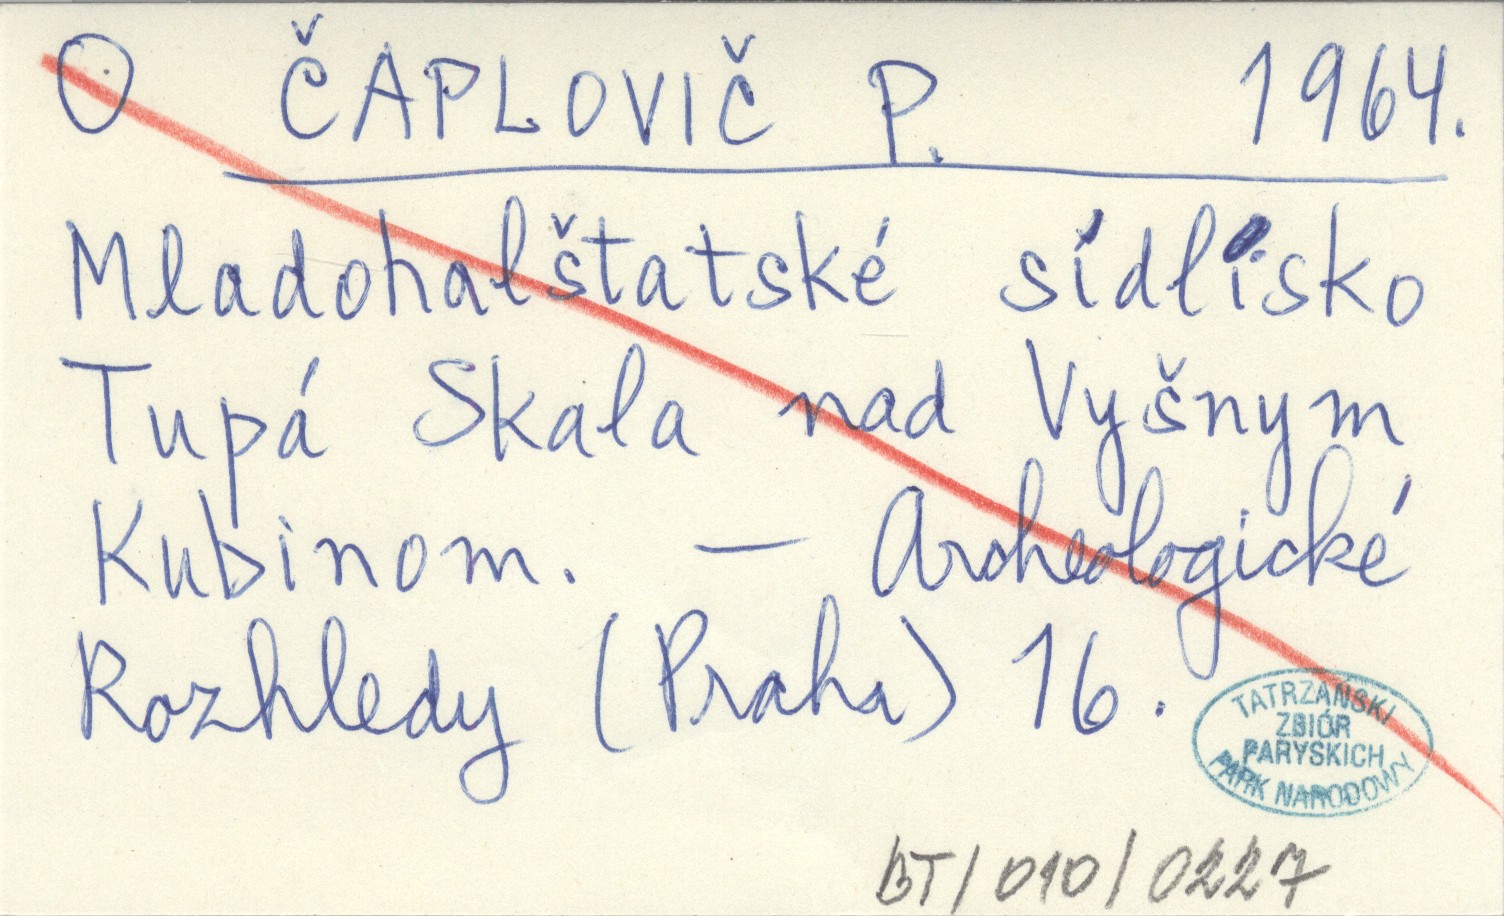 O ČAPLOVIČ P. 1964.
Mladohalštatské sídlisko
Tupá Skala nad Vyšnym
Kubinom. — Archeologické
Rozhledy (Praha) 16.
TATRZAŃSKI
ZBIÓR
PARYSKICH
PARK NARODOWY
BT/010/0227